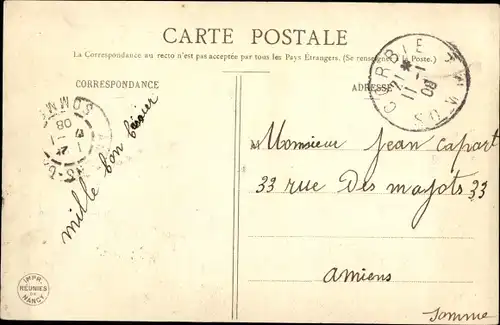 CARTE POSTALE
La Correspondance au recto n'est pas acceptée par tous les Pays Étrangers. (Se renseigner à la Poste.)
CORRESPONDANCE
ADRESSE
CORBIE
SOMME
21
11
08
SOMME
08
mille bon baiser
Monsieur Jean Capart
33 rue Des majots 33
amiens
Somme
IMPR.
RÉUNIES
DE
NANCY